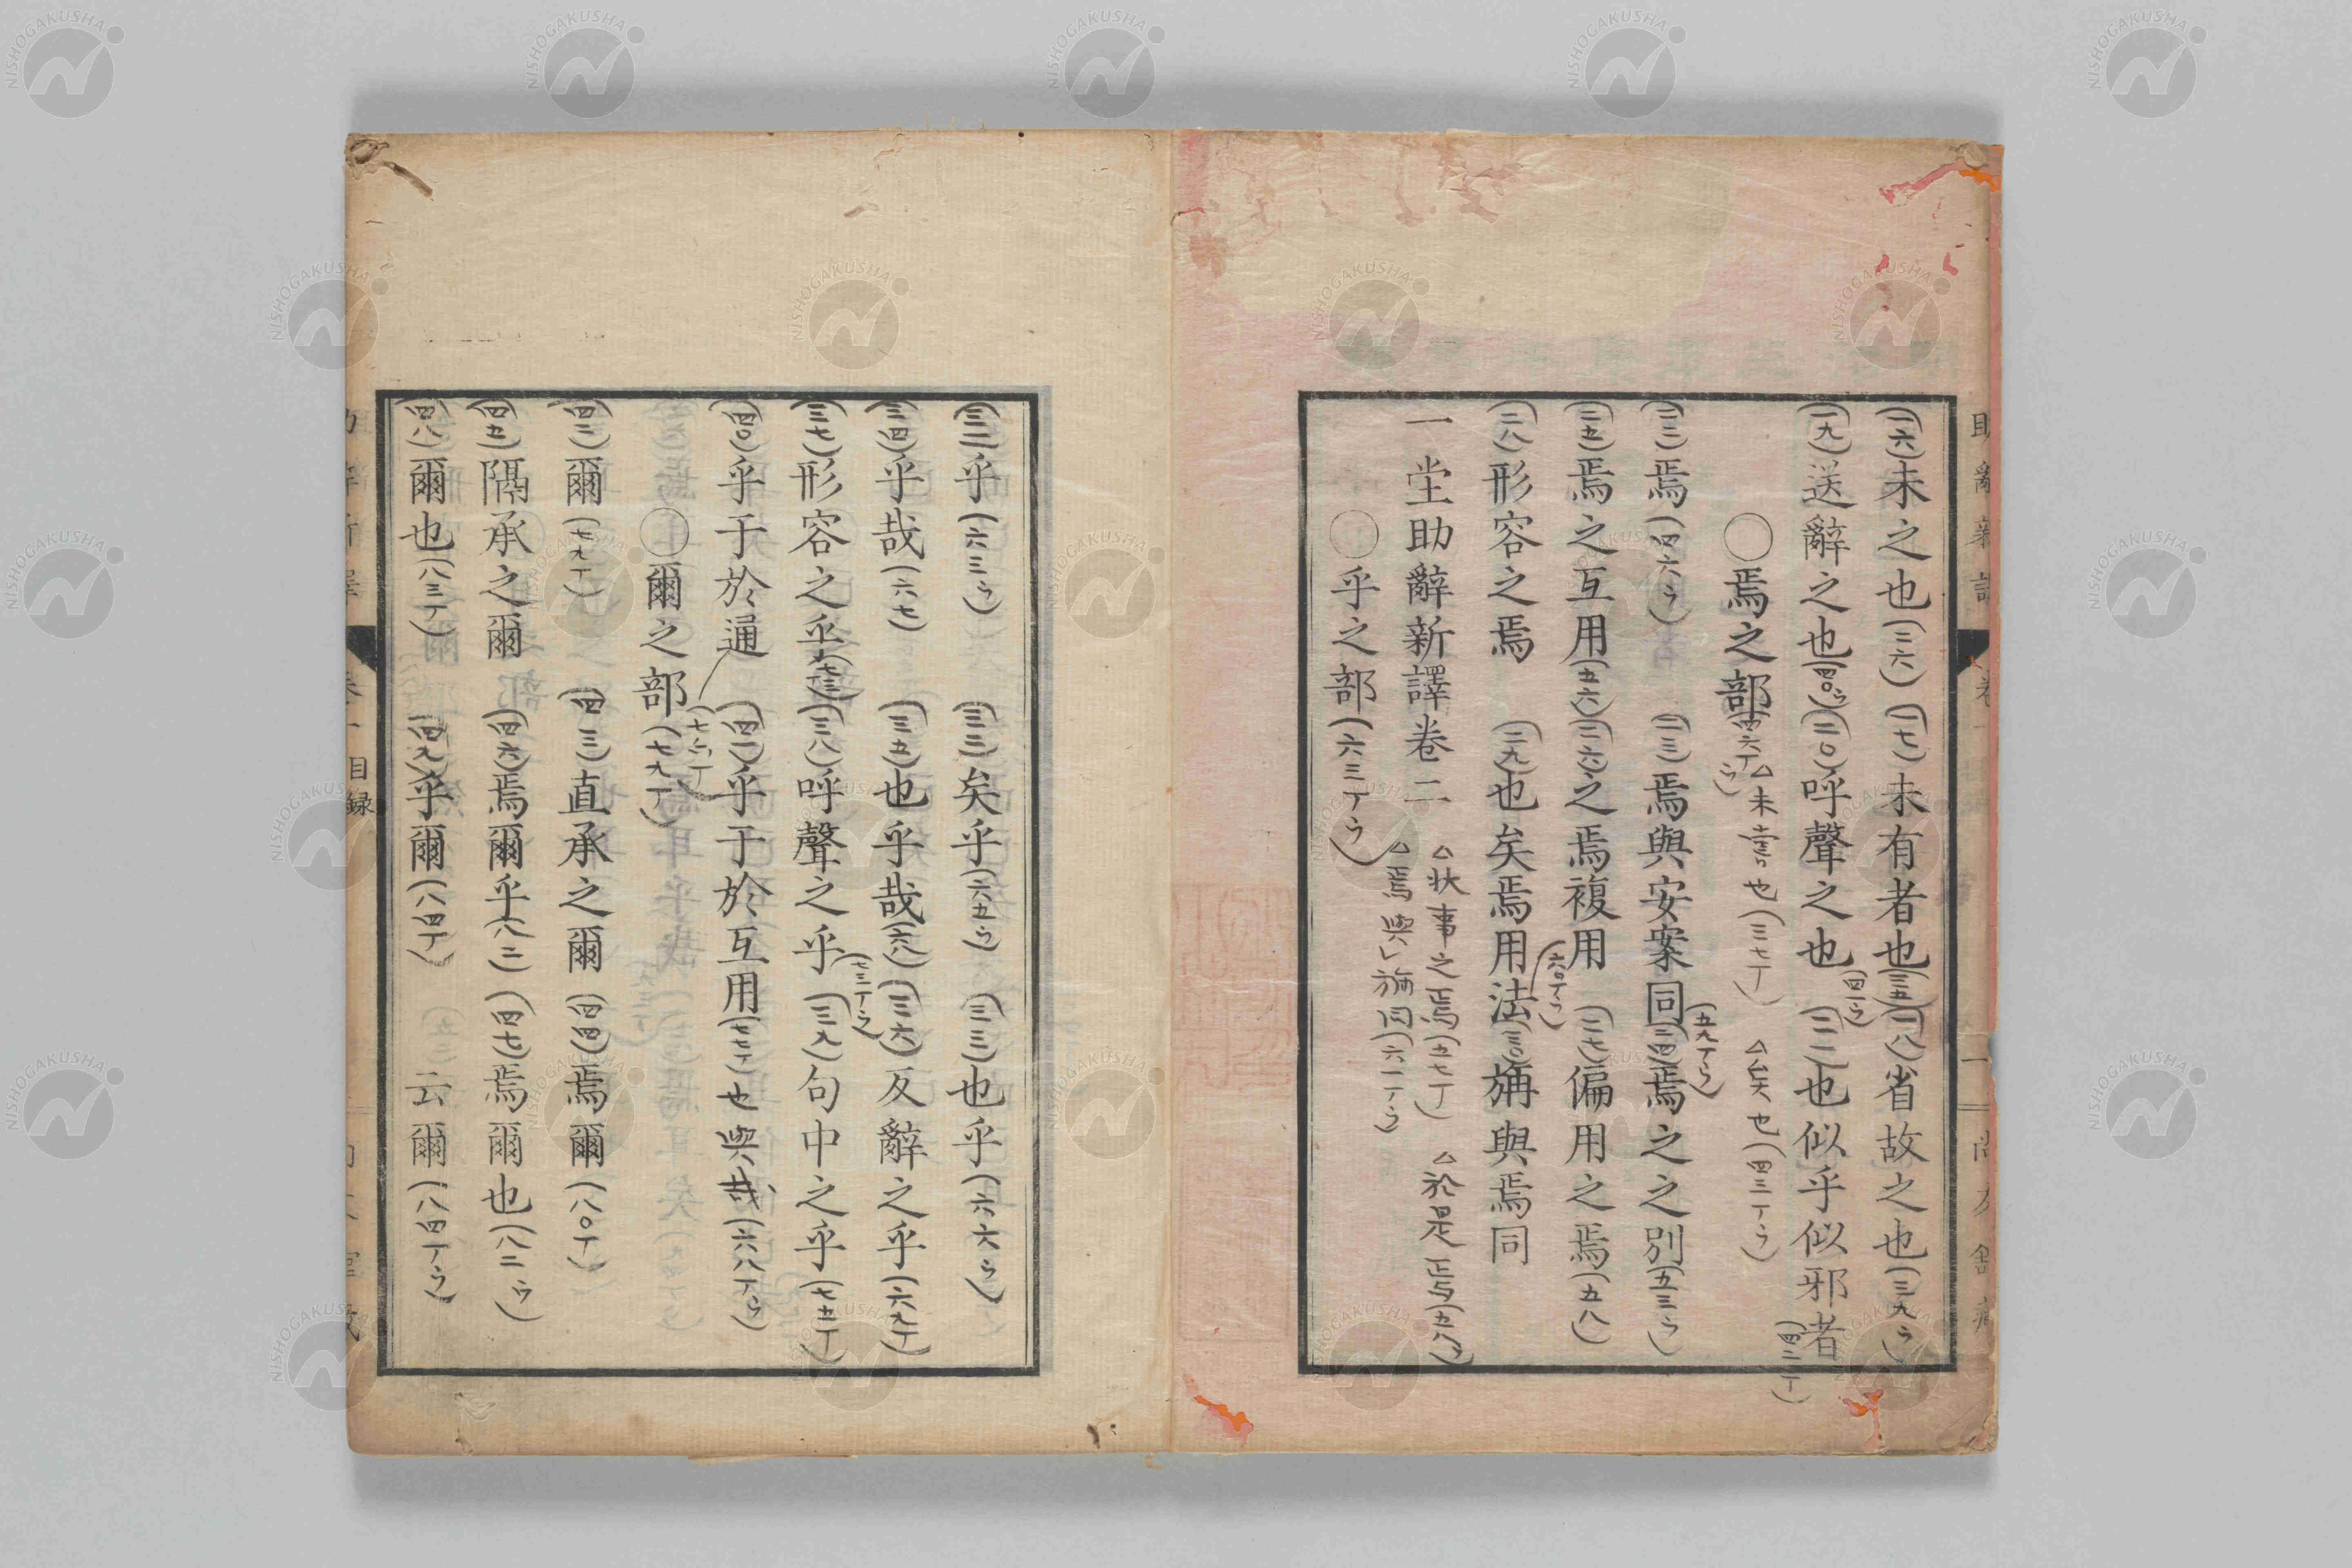 (一六)未之也(三六)(一七)未有者也(三五)(一八)省故之也(三九ウ)
(一九)送辭之也(四〇ウ)(二〇)呼聲之也(四一ウ)(二一)也似乎似邪者(四二丁)
〇焉之部(四六丁ウ)△未嘗也(三七丁)△矣也(四三丁ウ)
(二二)焉(四六ウ)(二三)焉與安案同(五九丁ウ)(二四)焉之之別(五三ウ)
(二五)焉之互用(五六)(二六)之焉複用(六〇丁ウ)(二七)偏用之焉(五八)
(二八)形容之焉(二九)也矣焉用法(三〇)旃與焉同
一堂助辭新譯卷二△狀事之焉(五七丁)△於是焉(五八ウ)
△焉與旃同(六一丁ウ)
〇乎之部(六三丁ウ)
(三一)乎(六三ウ)(三二)矣乎(六五ウ)(三三)也乎(六六ウ)
(三四)乎哉(六七)(三五)也乎哉(六八)(三六)反辭之乎(六九丁)
(三七)形容之乎(七三丁)(三八)呼聲之乎(七三丁ウ)(三九)句中之乎(七五丁)
(四〇)乎于於通(七六丁)(四一)乎于於互用(七七丁)也與哉(六八丁ウ)
〇爾之部(七九丁)
(四二)爾(七九丁)(四三)直承之爾(四四)焉爾(八〇丁)
(四五)隔承之爾(四六)焉爾乎(八二)(四七)焉爾也(八二ウ)
(四八)爾也(八三丁)(四九)乎爾(八四丁)云爾(八四丁ウ)
目録